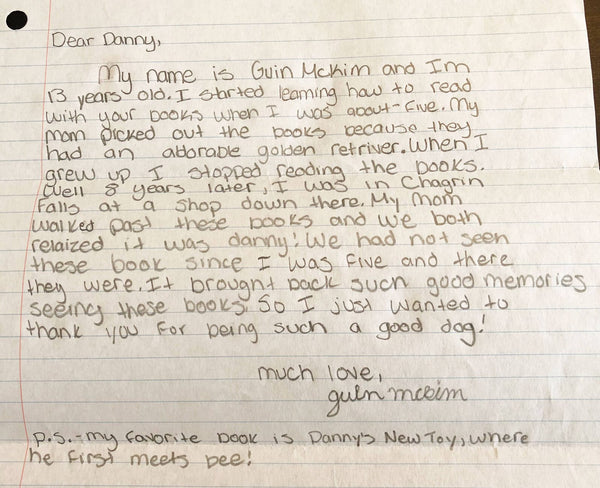 Dear Danny,
My name is Guin McKim and Im
13 years old. I started learning how to read
with your books when I was about-five. My
mom picked out the books because they
had an adorable golden retriver. When I
grew up I stopped reading the books.
Well 8 years later, I was in Chagrin
Falls at a shop down there. My Mom
walked past these books and we both
relaized it was danny! We had not seen
these book since I was five and there
they were. It brought back such good memories
seeing these books. So I just wanted to
thank you for being such a good dog!
much love,
guin mckim
p.s.-my favorite book is Danny's New Toy, where
he first meets bee!